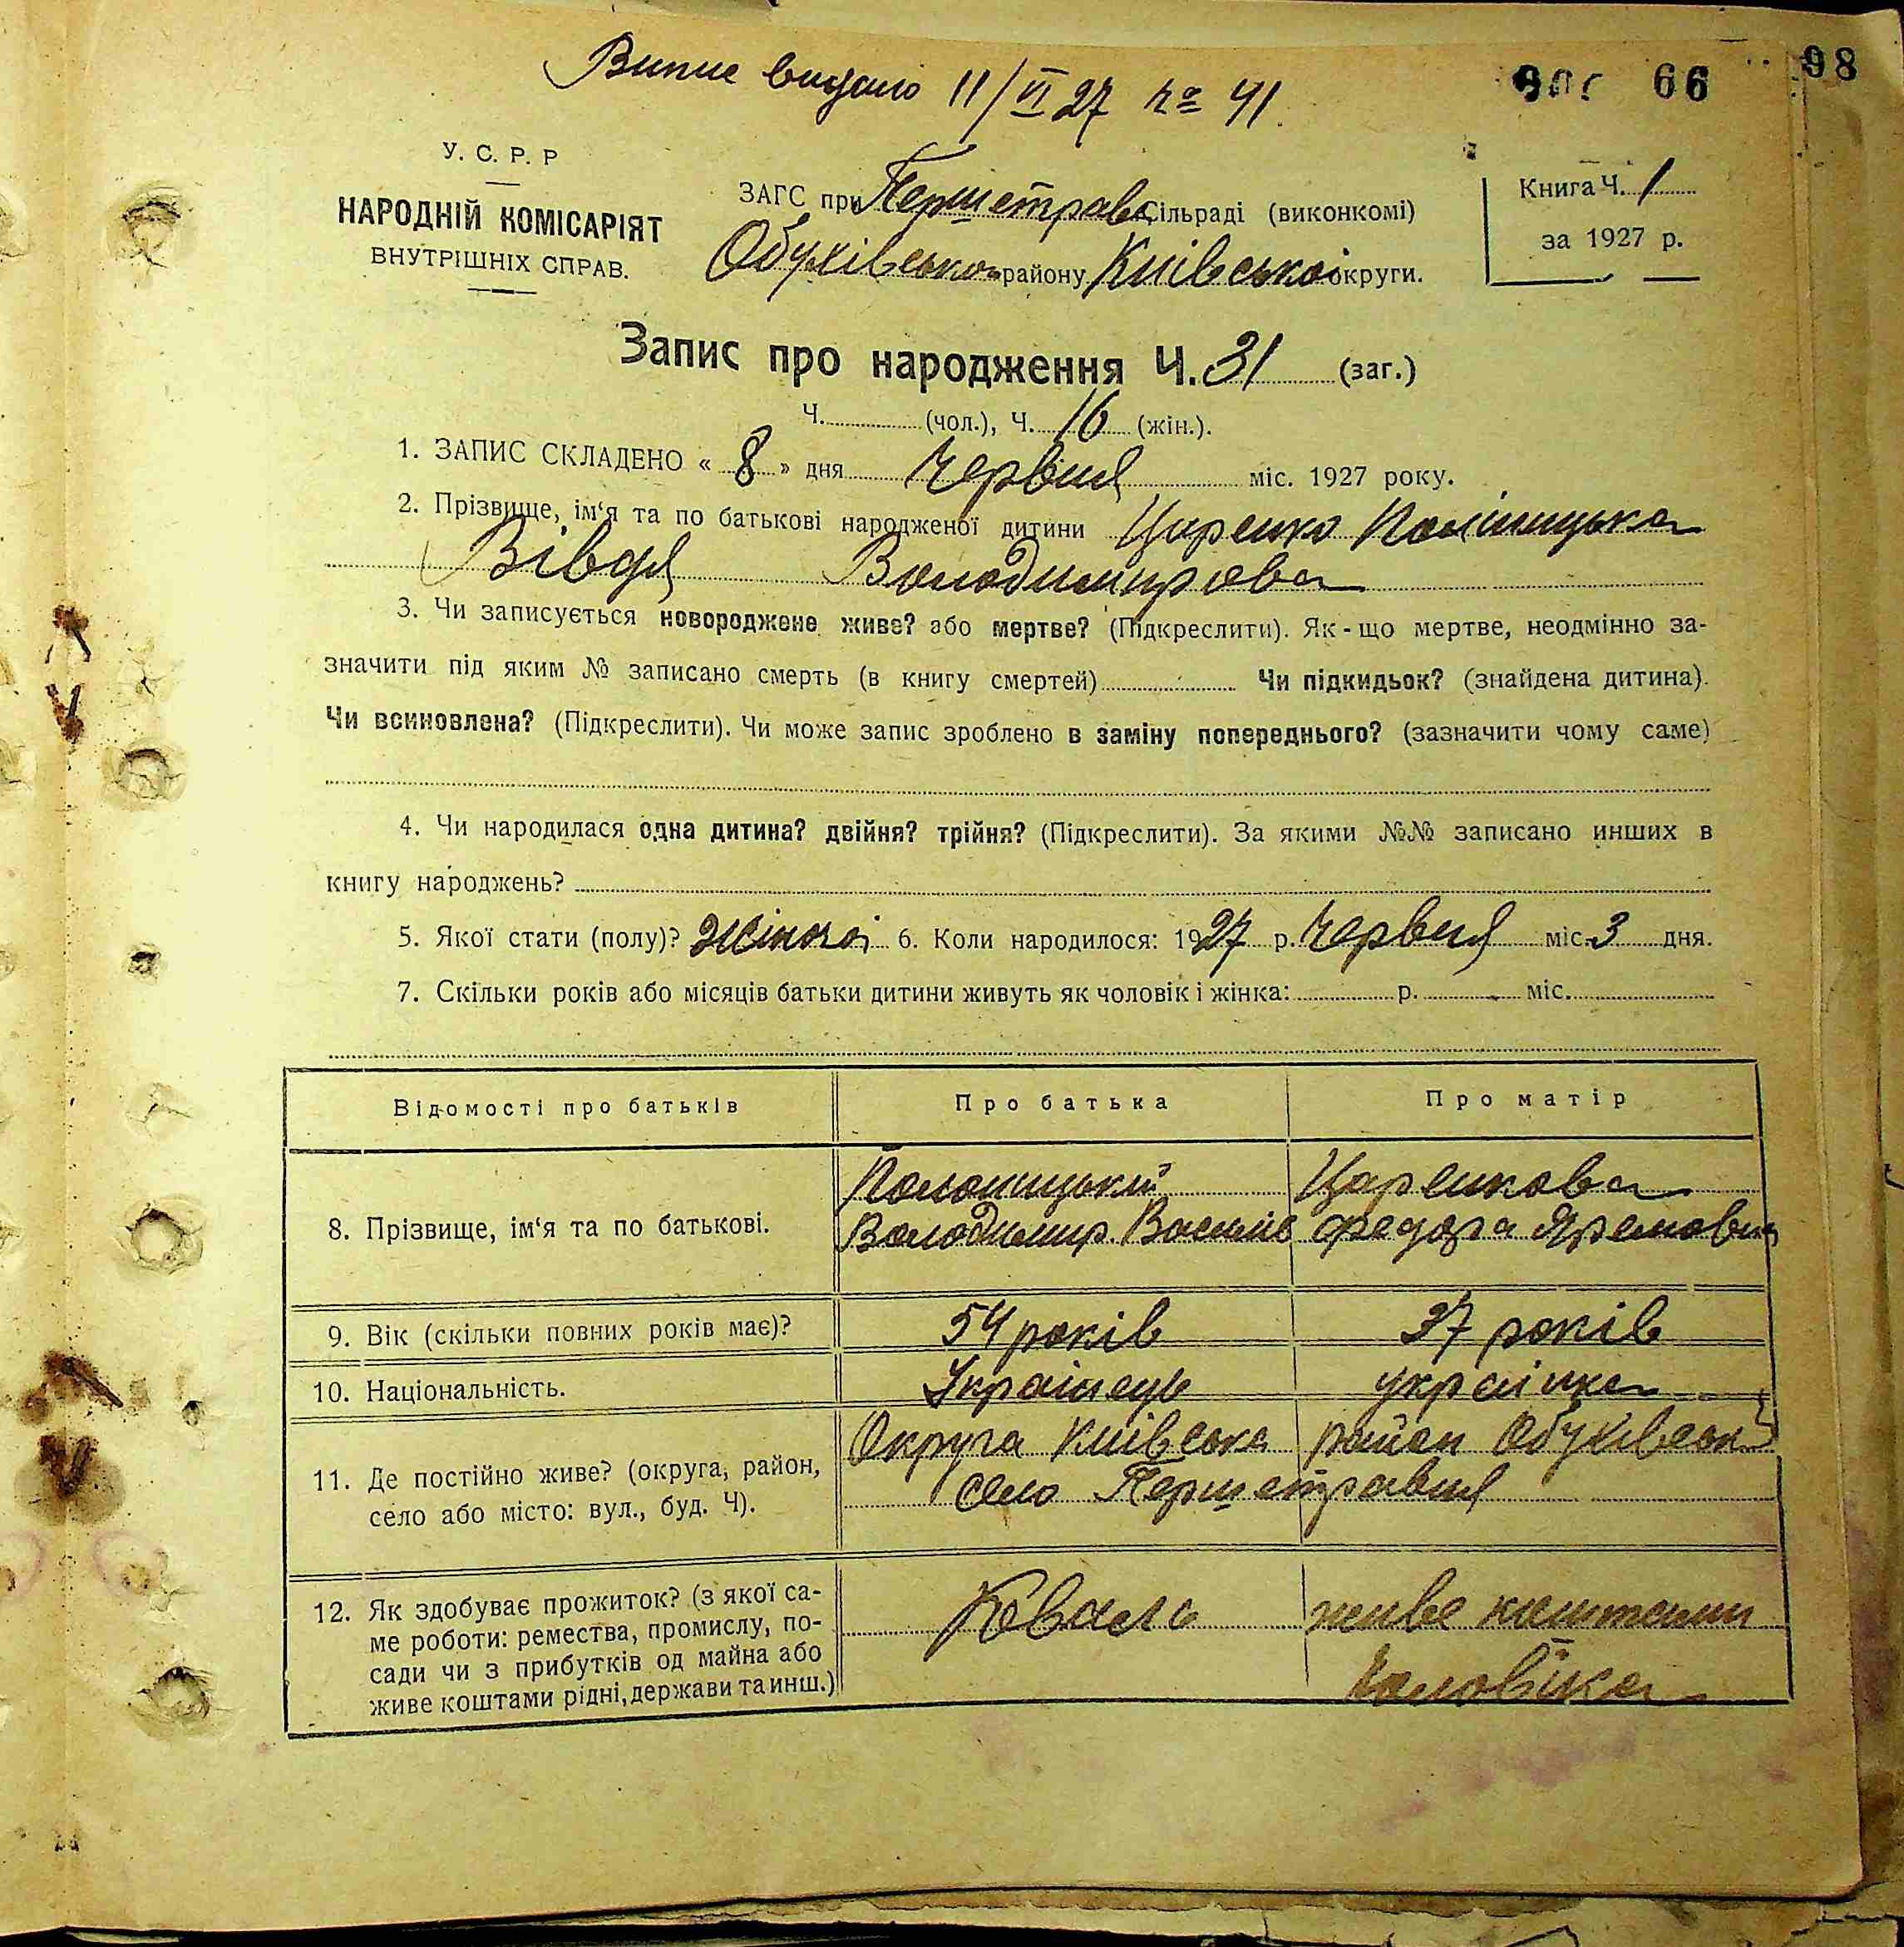 Випис видано 11/VI 27 № 41
66 98
У. С. Р. Р
НАРОДНІЙ КОМІСАРІЯТ
ВНУТРІШНІХ СПРАВ.
ЗАГС при Першетравен. Сільраді (виконкомі)
Обухівського району Київської округи.
Книга Ч. 1
за 1927 р.
Запис про народження Ч. 31 (заг.)
Ч. (чол.), Ч. 16 (жін.).
1. ЗАПИС СКЛАДЕНО « 8 » дня Червня міс. 1927 року.
2. Прізвище, ім‘я та по батькові народженої дитини Царенко
Вівдя Володимирова
3. Чи записується новороджене живе? або мертве? (Підкреслити). Як-що мертве, неодмінно за-
значити під яким № записано смерть (в книгу смертей) Чи підкидьок? (знайдена дитина).
Чи всиновлена? (Підкреслити). Чи може запис зроблено в заміну попереднього? (зазначити чому саме)
4. Чи народилася одна дитина? двійня? трійня? (Підкреслити). За якими №№ записано инших в
книгу народжень?
5. Якої стати (полу)? Жіночої 6. Коли народилося: 1927 р. Червня міс. 3 дня.
7. Скільки років або місяців батьки дитини живуть як чоловік і жінка: р. міс.
Відомості про батьків Про батька Про матір
8. Прізвище, ім‘я та по батькові.
Царенкова
Володимир Василів Федора Яремовна
9. Вік (скільки повних років має)? 54 років 37 років
10. Національність. Українець українка
11. Де постійно живе? (округа, район,
село або місто: вул., буд. Ч).
Округа Київська район Обухівськ
село Першетравня
12. Як здобуває прожиток? (з якої са-
ме роботи: ремества, промислу, по-
сади чи з прибутків од майна або
живе коштами рідні, держави та инш.)
Коваль живе коштами
чоловіка